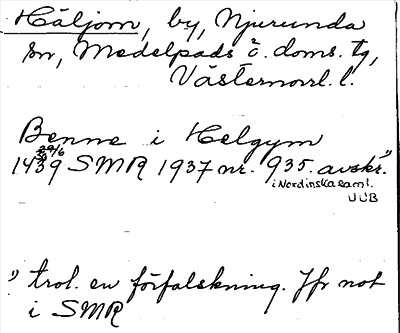 Häljom, by, Njurunda
sn, Medelpads ö. doms. tg,
Västernorrl. l.
Benne i Helgym
29/6
1439 SMR 1937 nr. 935. avskr.1)
i Nordinska saml.
UUB
1) trol. en förfalskning. Jfr not
i SMR